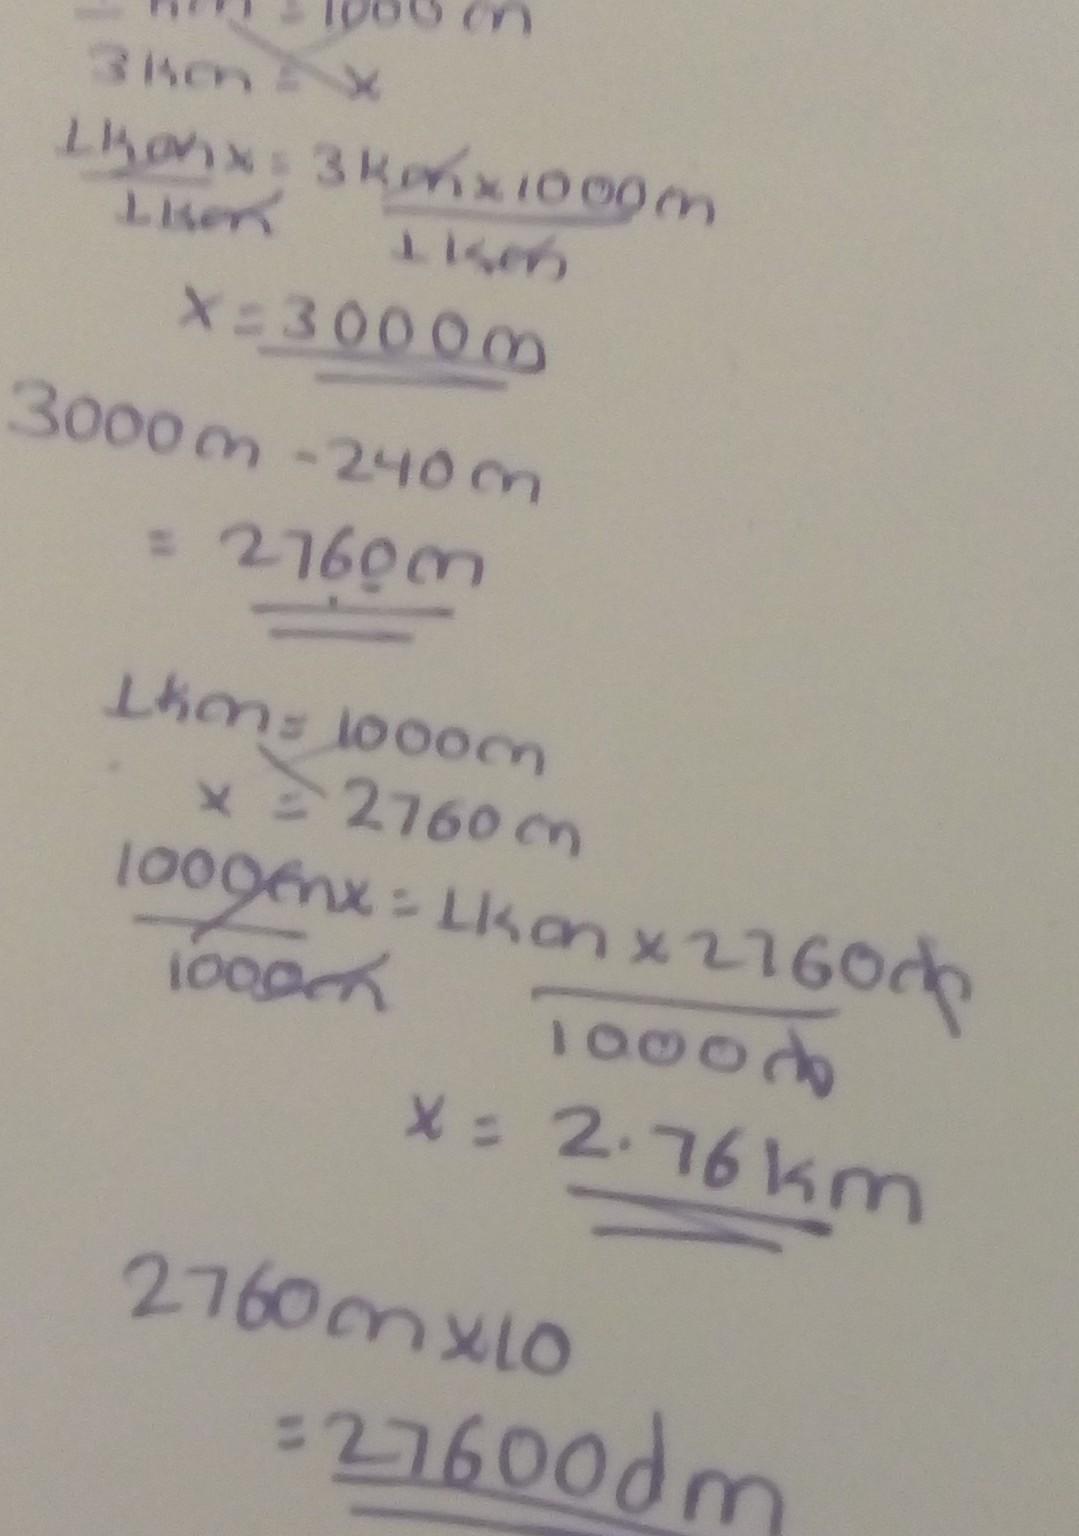 km = 1000m
3km = x
1kmx = 3km x 1000m
1km 1km
x = 3000m
3000m - 240m
= 2760m
1km = 1000m
x = 2760m
1000mx = 1km x 2760m
1000m 1000m
x = 2.76km
2760m x 10
= 27600dm